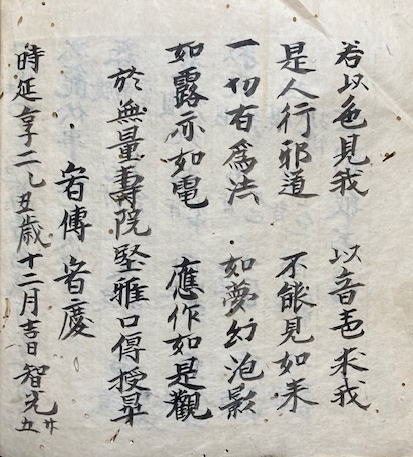 若以色見我　以音声求我
是人行邪道　不能見如来
一切有為法　如夢幻泡影
如露亦如電　應作如是觀
於無量寿院堅雅口傳授畢
宥傳　宥慶
時延享二乙丑歳十二月吉日智光廿五